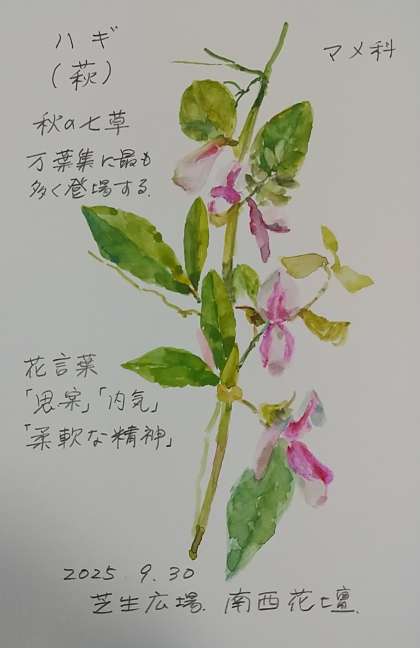 ハギ
(萩)
マメ科
秋の七草
万葉集に最も
多く登場する.
花言葉
「思案」「内気」
「柔軟な精神」
2025. 9. 30
芝生広場. 南西花壇.